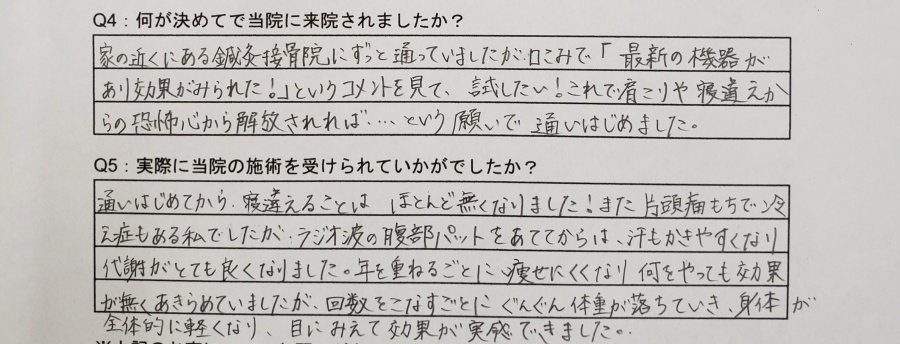 Q4：何が決めてで当院に来院されましたか？
家の近くにある鍼灸接骨院にずっと通っていましたが、口こみで「最新の機器が
あり効果がみられた！」というコメントを見て、試したい！これで肩こりや寝違えか
らの恐怖心から解放されれば‥‥という願いで通いはじめました。
Q5：実際に当院の施術を受けられていかがでしたか？
通いはじめてから、寝違えることはほとんど無くなりました！また片頭痛もちで冷
え症もある私でしたが、ラジオ波の腹部パットをあててからは、汗もかきやすくなり
代謝がとても良くなりました。年を重ねるごとに痩せにくくなり何をやっても効果
が無くあきらめていましたが、回数をこなすごとにぐんぐん体重が落ちていき、身体が
全体的に軽くなり、目にみえて効果が実感できました。